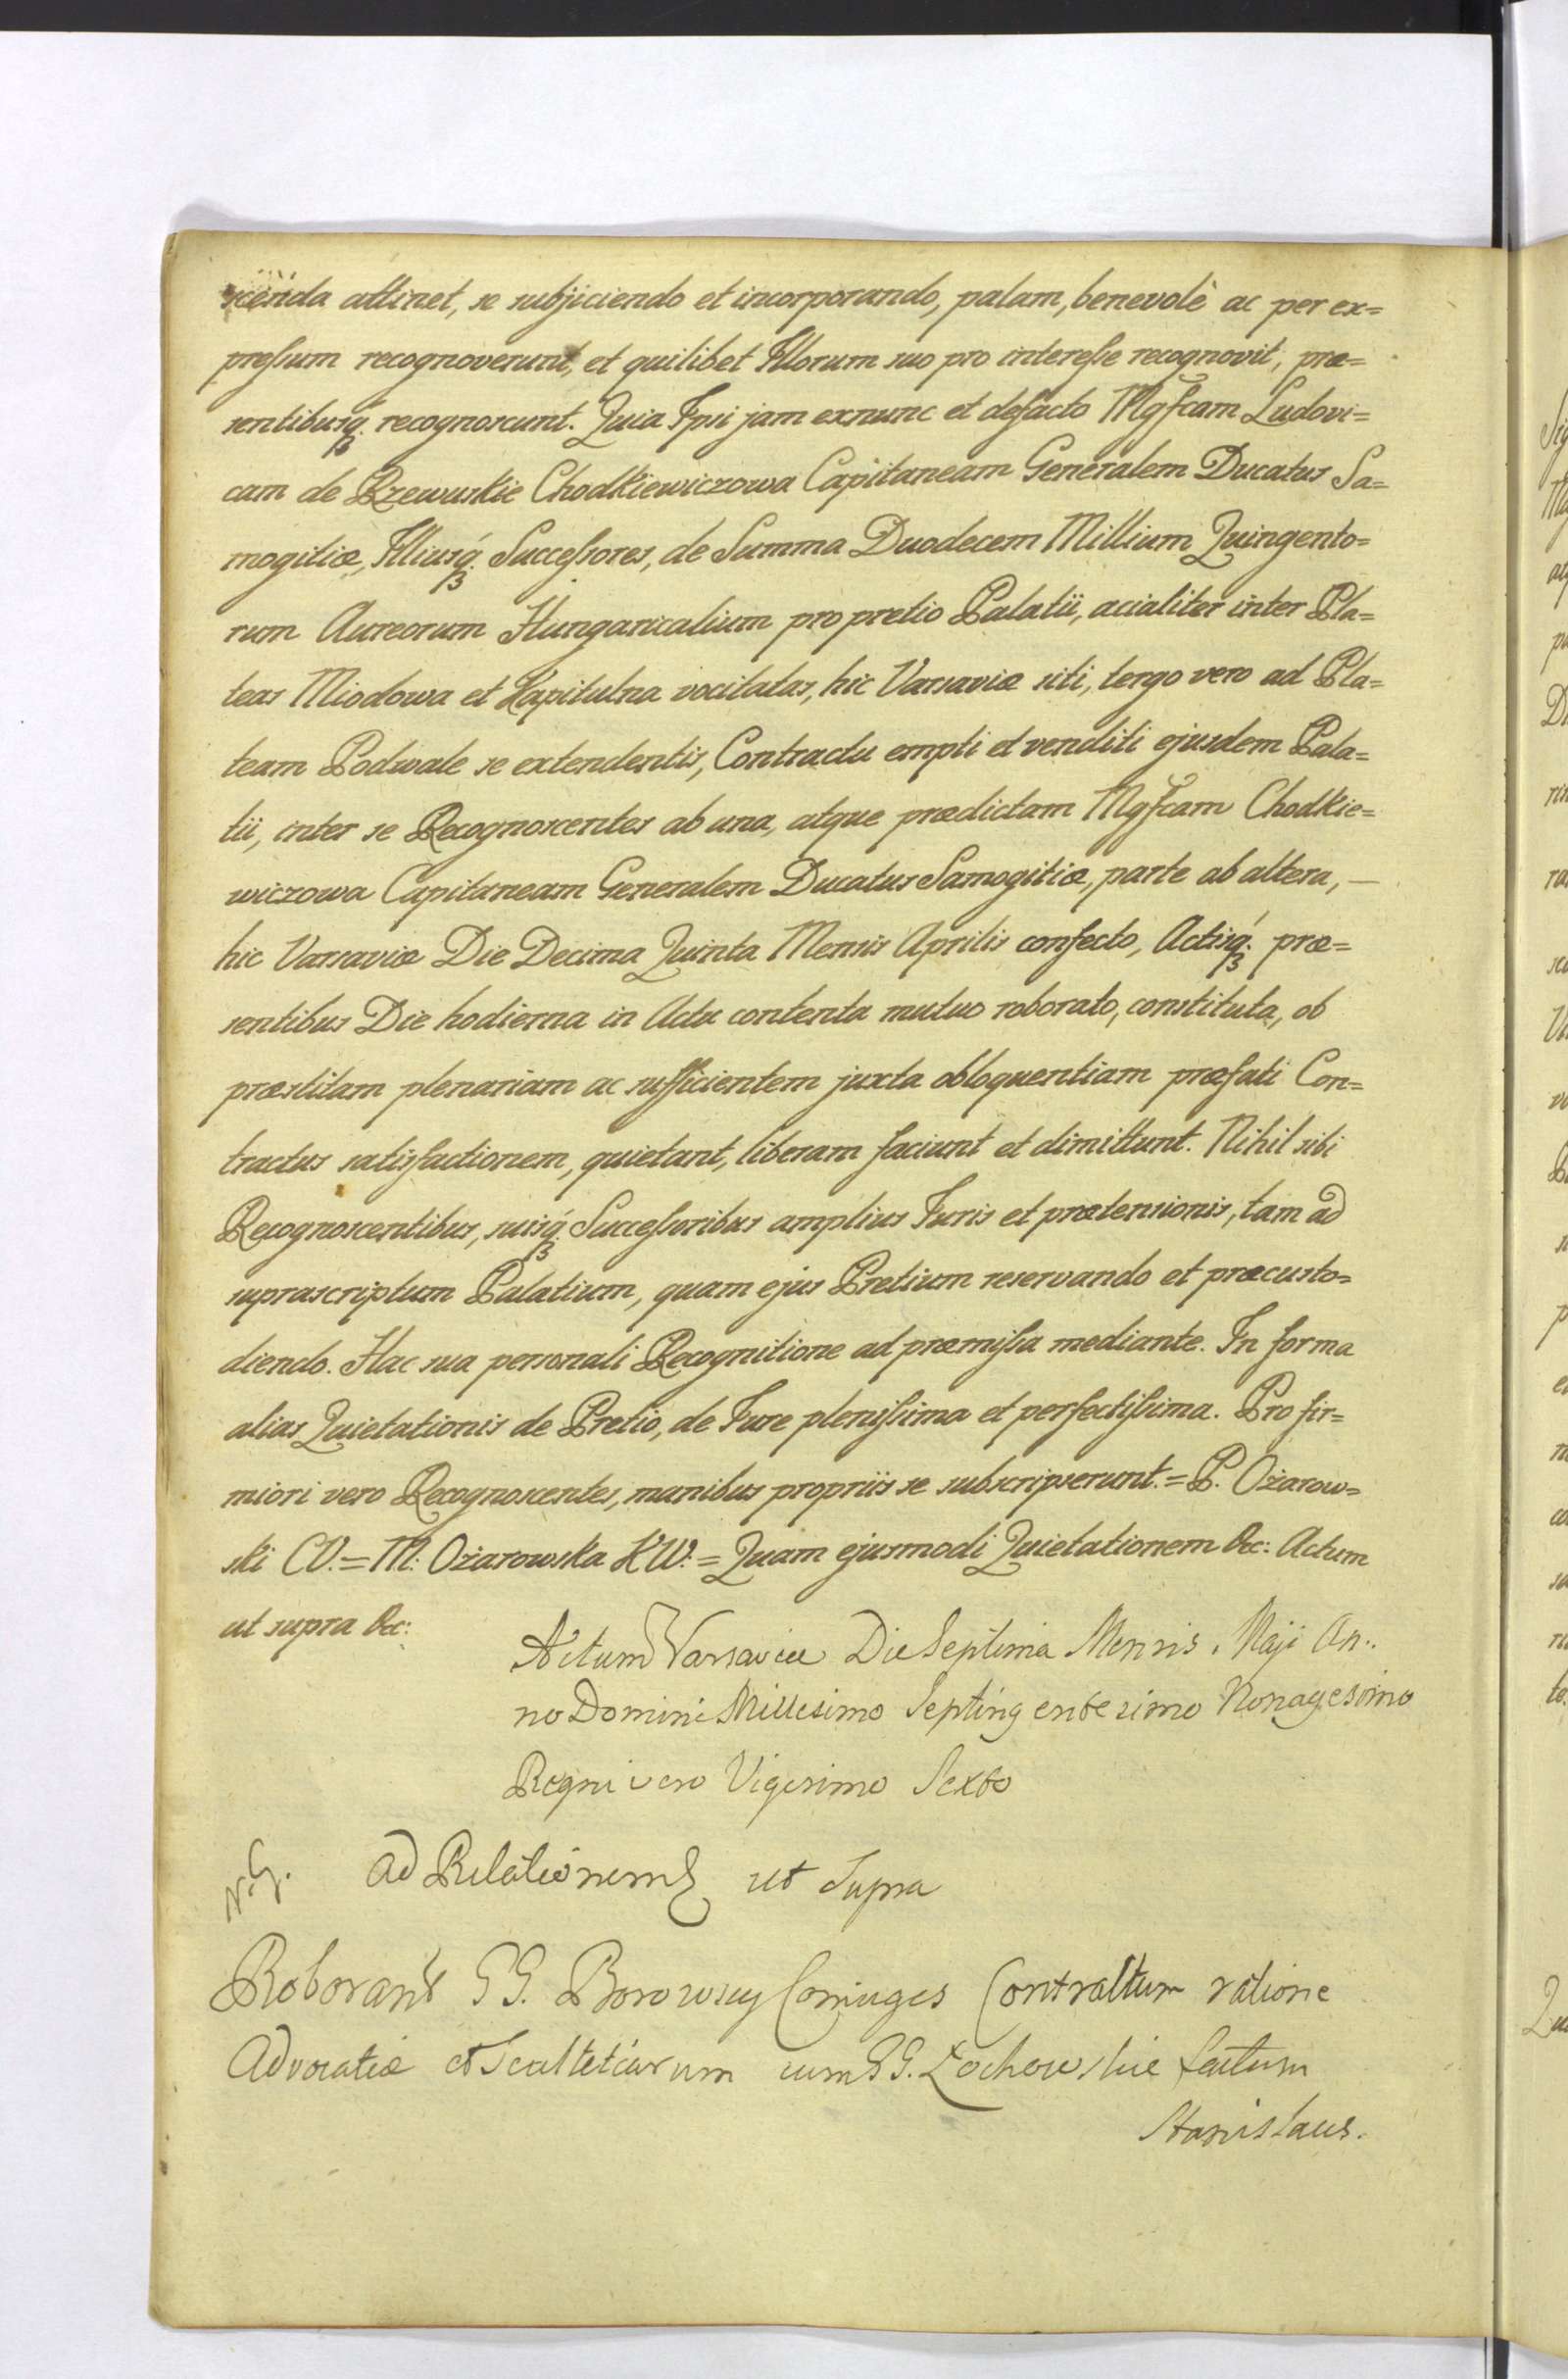 scenda attinet, se subjiciendo et incorporando, palam, benevolè ac per ex=
preſsum recognoverunt, et quilibet Illorum suo pro intereſse recognovit, præ=
sentibusq́ꝫ recognoscunt. Quia Ipsi jam exnunc et defacto Mgfcam Ludovi=
cam de Rzewuskie Chodkiewiczowa Capitaneam Generalem Ducatus Sa=
mogitiæ, Illiusq́ꝫ Succeſsores, de Summa Duodecem Millium Quingento=
rum Aureorum Hungaricalium pro pretio Palatii, acialiter inter Pla=
teas Miodowa et Kapitulna vocitatas, hic Varsaviæ siti, tergo vero ad Pla=
team Podwale se extendentis, Contractu empti et venditi ejusdem Pala=
tii, inter se Recognoscentes ab una, atque prædictam Mgfcam Chodkie=
wiczowa Capitaneam Generalem Ducatus Samogitiæ, parte ab altera, —
hic Varsaviæ Die Decima Quinta Mensis Aprilis confecto, Actisq́ꝫ præ=
sentibus Die hodierna in Actu contenta mutuo roborato, constituta, ob
præstitam plenariam ac sufficientem juxta obloquentiam præfati Con=
tractus satisfactionem, quietant, liberam faciunt et dimittunt. Nihil sibi
Recognoscentibus, suisq́ꝫ Succeſsoribus amplius Juris et prætensionis, tam ad
suprascriptum Palatium, quam ejus Pretium reservando et præcusto=
diendo. Hac sua personali Recognitione ad præmiſsa mediante. In forma
alias Quietationis de Pretio, de Jure pleniſsima et perfectiſsima. Pro fir=
miori vero Recognoscentes, manibus propriis se subscripserunt.= P. Ożarow=
ski CW.= M: Ożarowska KW.= Quam ejusmodi Quietationem &c: Actum
ut supra &c:
Actum Varsaviæ Die Septima Mensis Maji An..
no Domini Millesimo Septingentesimo Nonagesimo
Regni vero Vigesimo Sexto
Ad Relationem ut Supra
Roborant GG. Borowscy Coniuges Contractum ratione
Advocatiæ et Scultetiarum cum GG. Łochowskie factum
Stanislaus.